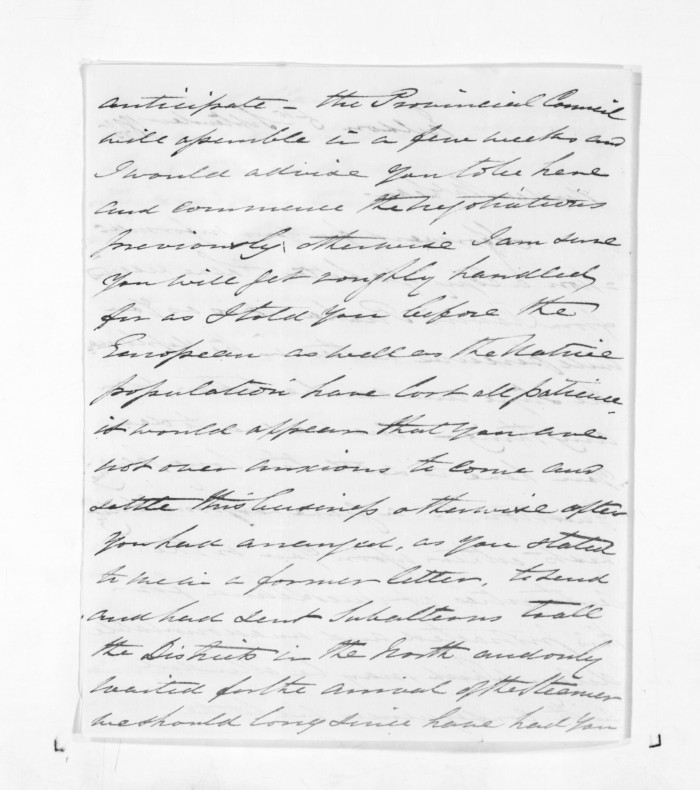 anticipate - the Provincial Council
will assemble in a few weeks and
I would advise You to be here
and commence the negotiations
previously, otherwise I am sure
You will get roughly handled,
for as I told You before the
European as well as the Native
population have lost all patience
it would appear that You are
not over anxious to come and
settle this business otherwise after
You had arranged, as You stated
to me in a former letter, to send
and had sent Subalterns to all
the Districts in the North and only
waited for the arrival of the Steamer
we should long since have had You